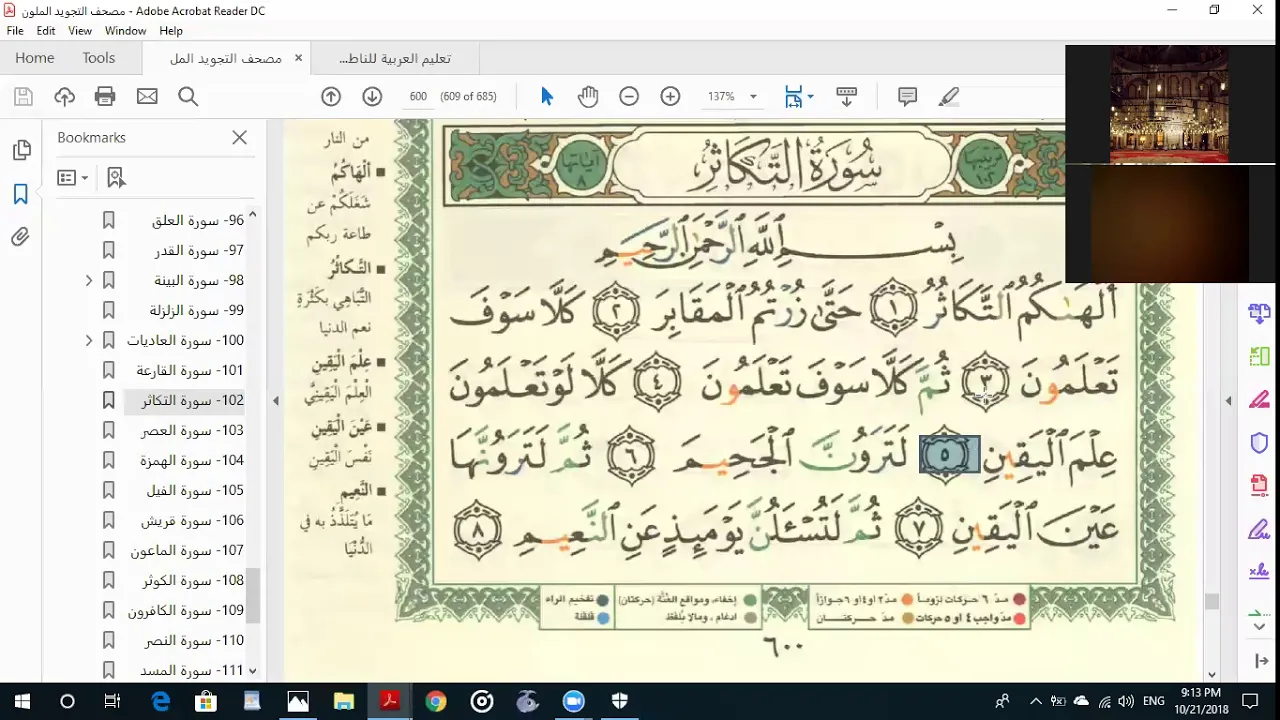 مصحف التجويد الملون - Adobe Acrobat Reader DC
File Edit View Window Help
Home Tools مصحف التجويد المل × تعليم العربية للناط...
600 (609 of 685) 137%
Bookmarks
96- سورة العلق
97- سورة القدر
98- سورة البينة
99- سورة الزلزلة
100- سورة العاديات
101- سورة القارعة
102- سورة التكاثر
103- سورة العصر
104- سورة الهمزة
105- سورة الفيل
106- سورة قريش
107- سورة الماعون
108- سورة الكوثر
109- سورة الكافرون
110- سورة النصر
111- سورة المسد
ترتيبها ١٠٢
سُورَةُ التَّكَاثُرِ
آياتها ٨
بِسْمِ اللَّهِ الرَّحْمَٰنِ الرَّحِيمِ
أَلْهَىٰكُمُ التَّكَاثُرُ ١ حَتَّىٰ زُرْتُمُ الْمَقَابِرَ ٢ كَلَّا سَوْفَ
تَعْلَمُونَ ٣ ثُمَّ كَلَّا سَوْفَ تَعْلَمُونَ ٤ كَلَّا لَوْ تَعْلَمُونَ
عِلْمَ الْيَقِينِ ٥ لَتَرَوُنَّ الْجَحِيمَ ٦ ثُمَّ لَتَرَوُنَّهَا
عَيْنَ الْيَقِينِ ٧ ثُمَّ لَتُسْـَٔلُنَّ يَوْمَئِذٍ عَنِ النَّعِيمِ ٨
من النار
أَلْهَاكُمُ
شَغَلَكُمْ عن
طاعة ربكم
التَّكَاثُرُ
التَّبَاهِي بِكَثْرَةِ
نعم الدنيا
عِلْمَ الْيَقِينِ
الْعِلْمَ الْيَقِينِيَّ
عَيْنَ الْيَقِينِ
نَفْسَ الْيَقِينِ
النَّعِيمِ
مَا يُتَلَذَّذُ به في
الدُّنْيَا
مدّ ٦ حركات لزوماً مدّ ٢ او ٤ او ٦ جوازاً
مدّ واجب ٤ او ٥ حركات مدّ حركتان
إخفاء، ومواقع الغُنَّة (حركتان)
ادغام، ومالا يُلفَظ
تفخيم الراء
قلقلة
٦٠٠
ENG
9:13 PM
10/21/2018